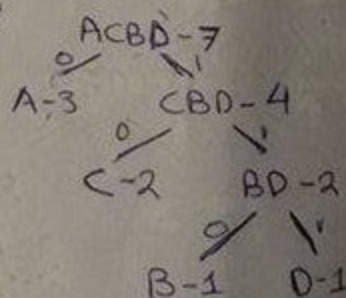 ACBD-7
0 1
A-3 CBD-4
0 1
C-2 BD-2
0 1
B-1 D-1